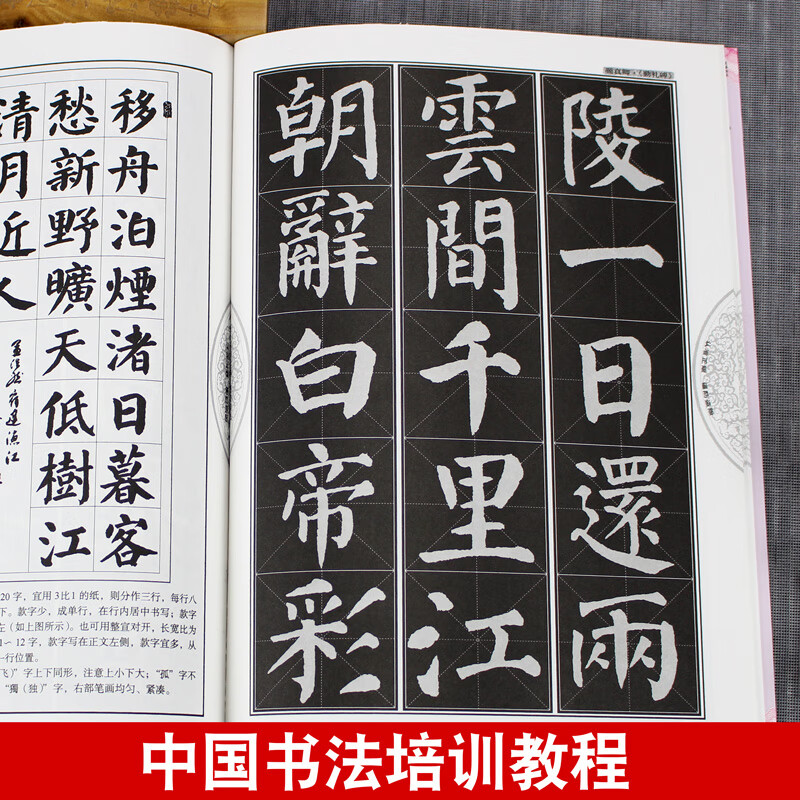 移舟泊煙渚日暮客
愁新野曠天低樹江
清月近人
孟浩然 宿建德江
20字，宜用3比1的纸，则分作三行，每行八
下。款字少，成单行，在行内居中书写；款字
左（如上图所示）。也可用整宣对开，长宽比为
～12字，款字写在正文左侧，款字宜多，从
一行位置。
飞）”字上下同形，注意上小下大；“孤”字不
“獨（独）”字，右部笔画均匀、紧凑。
颜真卿·《勤礼碑》
朝辭白帝彩
雲間千里江
陵一日還兩
中国书法培训教程